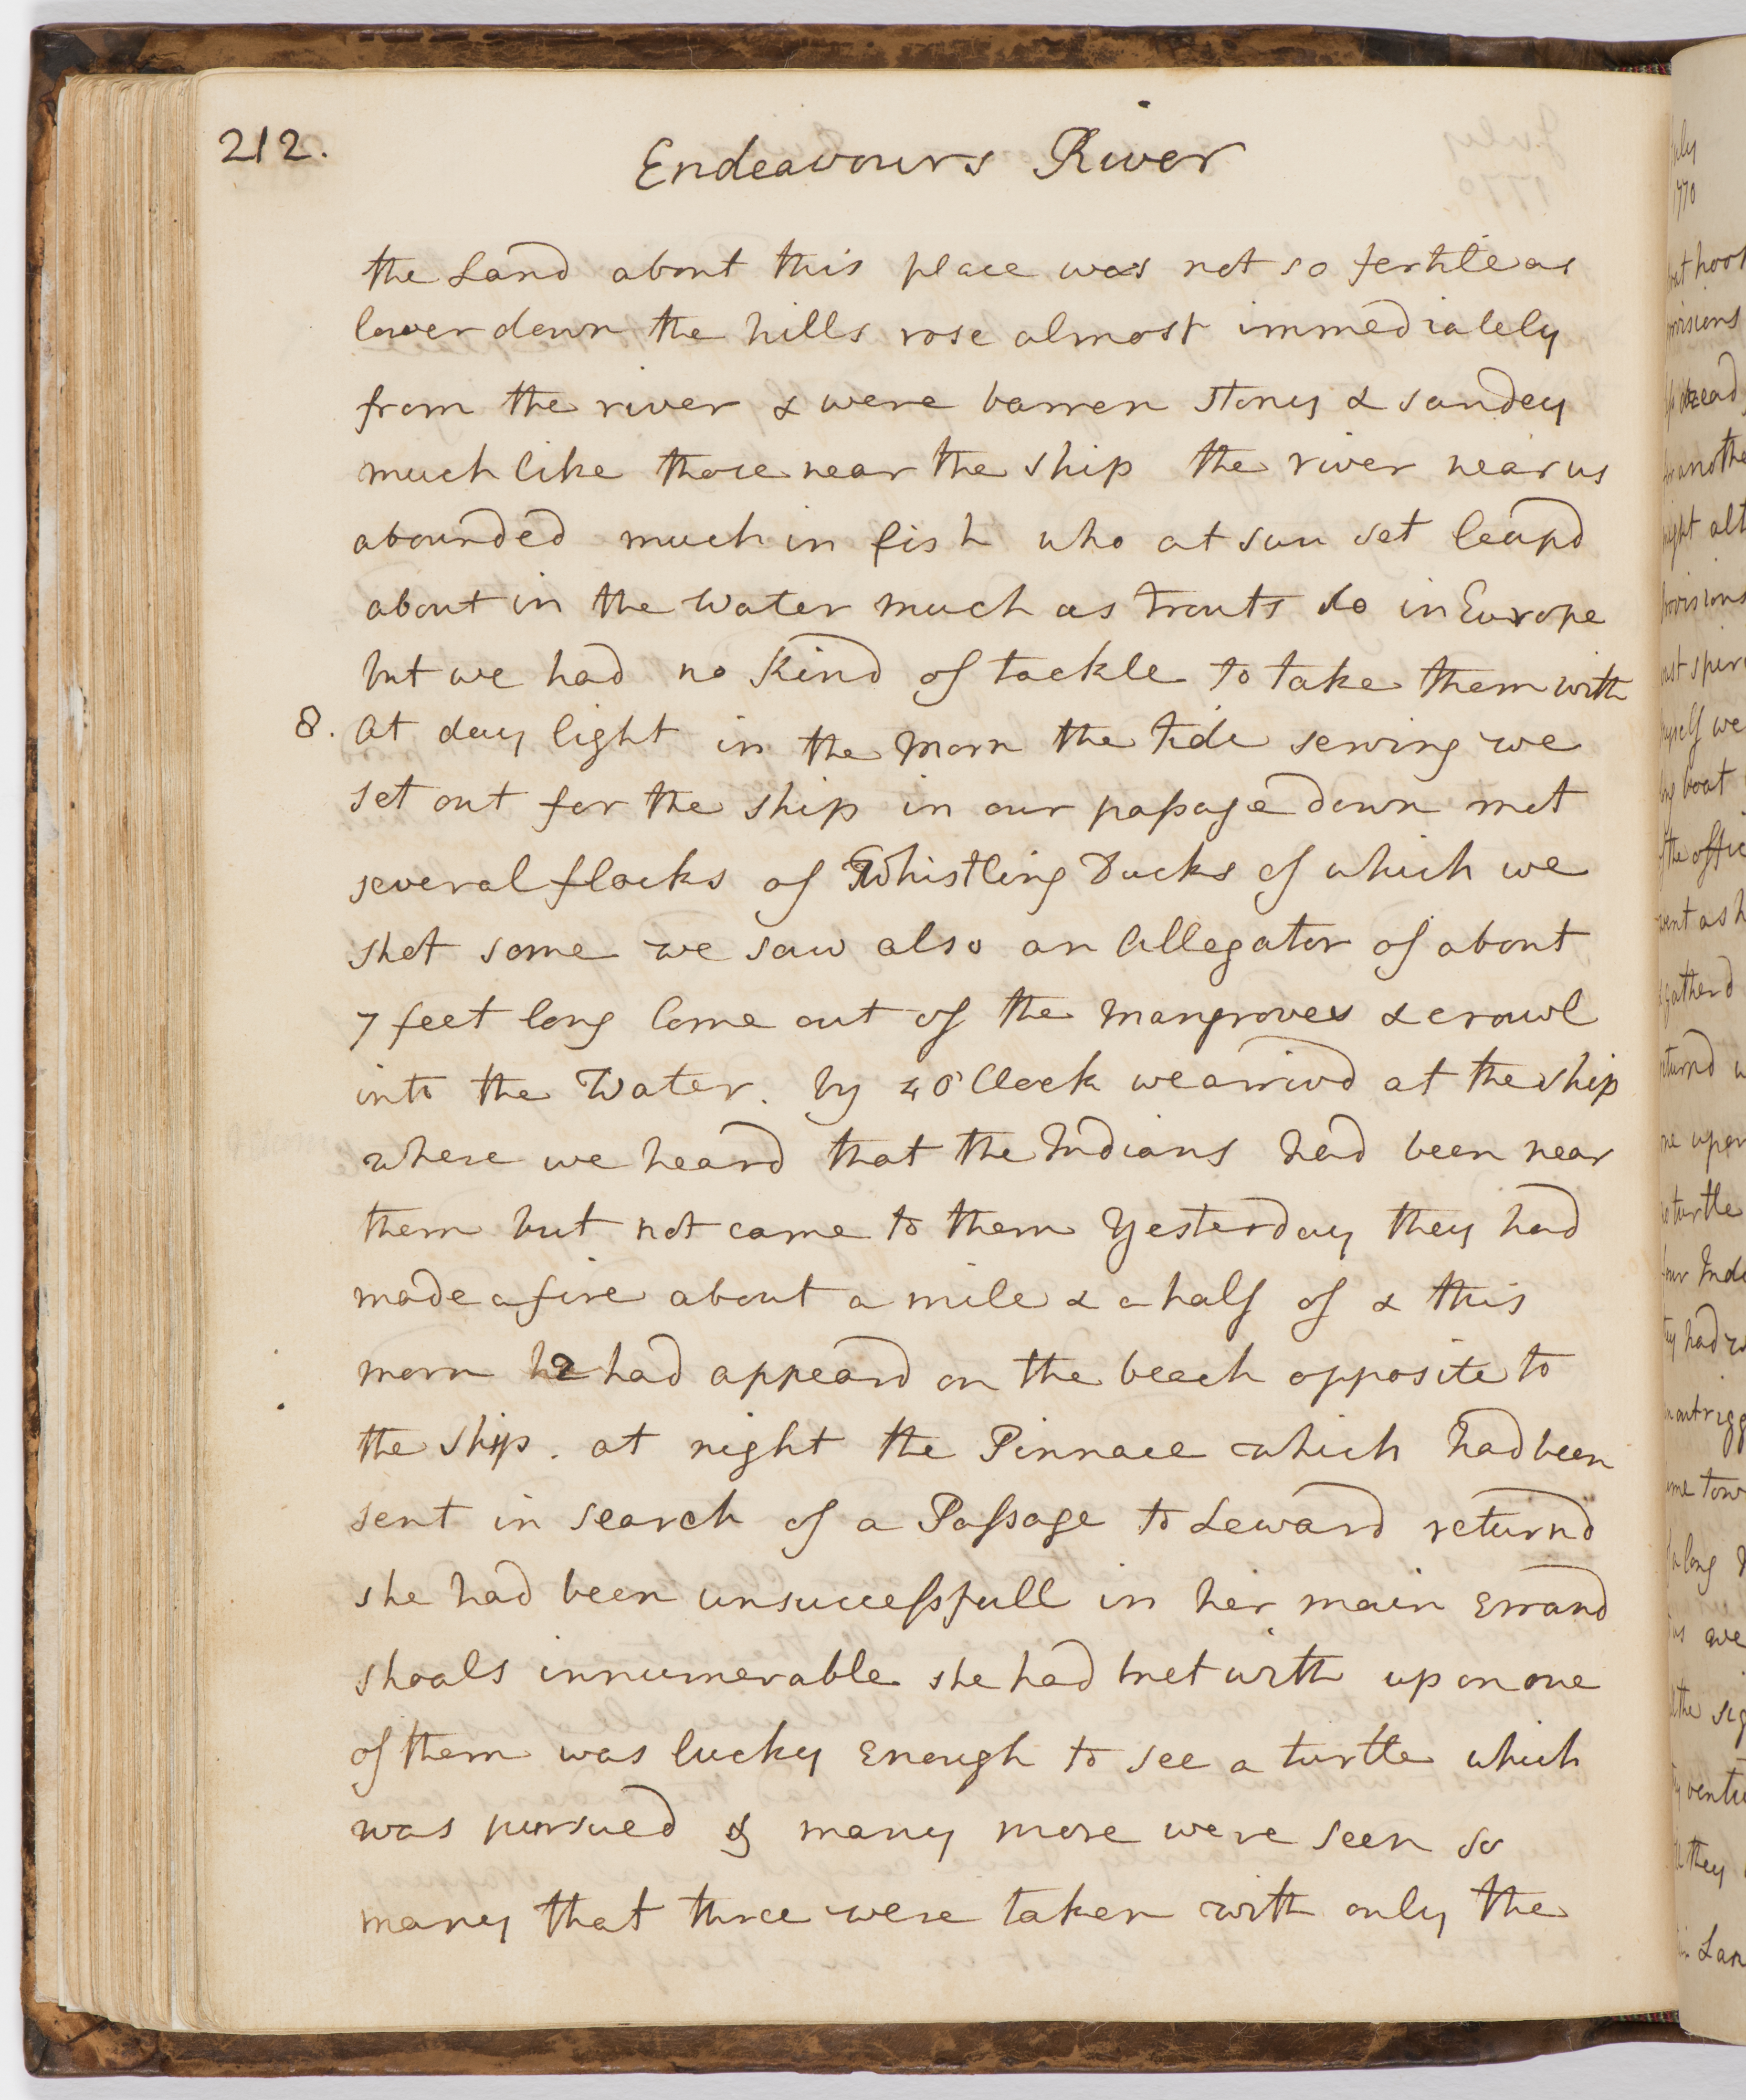 212.
Endeavours River
the Land about this place was not so fertile as
lower down the hills rose almost immediately
from the river & were barren stony & sandey
much like those near the ship the river near us
abounded much in fish who at sun set leapd
about in the Water much as trouts do in Europe
but we had no kind of tackle to take them with
8. At day light in the Morn the tide serving we
set out for the ship in our passage down met
several flocks of Whistling Ducks of which we
shot some we saw also an Allegator of about
7 feet long come out of the Mangroves & crawl
into the Water. by 4 O'Clock we arrivd at the ship
where we heard that the Indians had been near
them but not came to them Yesterday they had
made a fire about a mile & a half of & this
morn 2 had appeard on the beach opposite to
the ship. at night the Pinnace which had been
sent in search of a Passage to Leward returnd
she had been unsuccessfull in her main Errand
shoals innumerable she had met with upon one
of them was lucky Enough to see a turtle which
was pursued & many more were seen so
many that three were taken with only the
July
1770